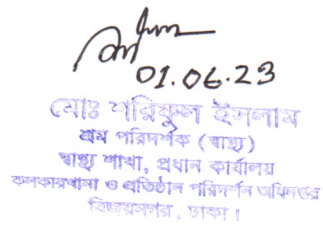 01.06.23
মোঃ শরিফুল ইসলাম
শ্রম পরিদর্শক (স্বাস্থ্য)
স্বাস্থ্য শাখা, প্রধান কার্যালয়
কলকারখানা ও প্রতিষ্ঠান পরিদর্শন অধিদপ্তর
বিজয়নগর, ঢাকা।